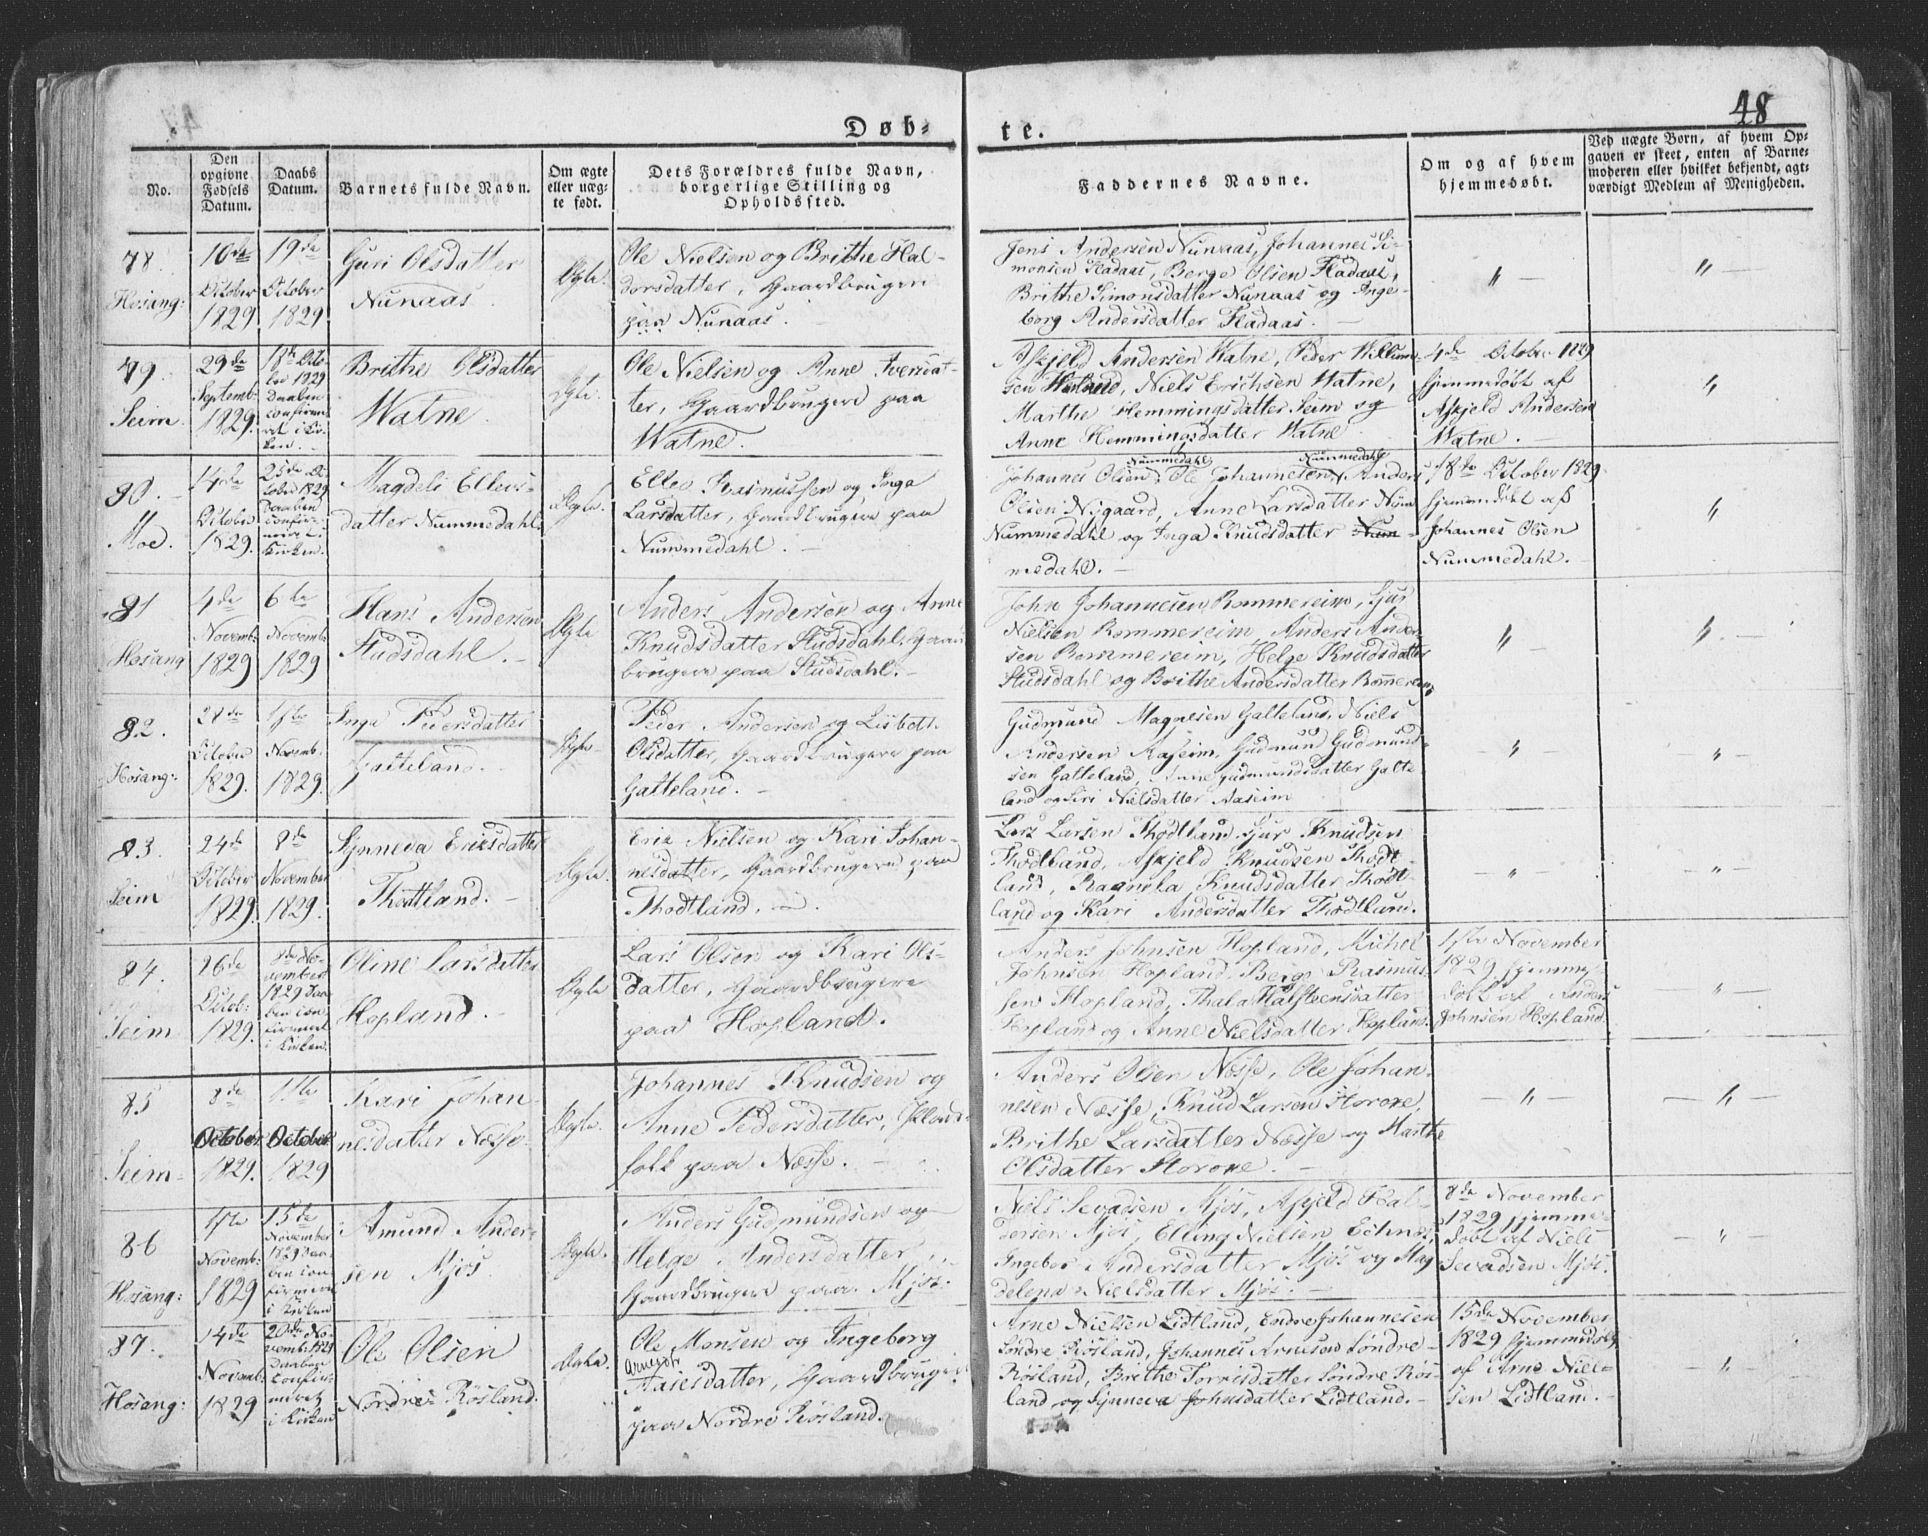 48
Døb-
te.
No.
Den
opgivne
Fødsels
Datum.
Daabs
Datum.
Barnets fulde Navn.
Om ægte
eller uæg-
te født.
Dets Forældres fulde Navn,
borgerlige Stilling og
Opholdssted.
Faddernes Navne.
Om og af hvem
hjemmedøbt.
Ved uægte Børn, af hvem Op-
gaven er skeet, enten af Barne-
moderen eller hvilket bekjendt, agt-
værdigt Medlem af Menigheden.
78.
Hosang:
16de
October
1829
19de
October
1829
Guri Olsdatter
Nunaas.
Ægte.
Ole Nielsen og Brithe Hal-
dorsdatter, Gaardbrugere
paa Nunaas.
Jens Andersen Nunaas, Johannes Si-
monsen Fladaas, Berge Olsen Fladaas,
Brithe Simonsdatter Nunaas og Inge-
borg Andersdatter Fladaas.
79.
Seim.
29de
Septemb:
1829.
18de Octo-
ber 1829
Daaben
confirme-
ret i Kir-
ken.
Brithe Olsdatter
Watne
Ægte.
Ole Nielsen og Anne Iversdat-
ter, Gaardbrugere paa
Watne.
Askjeld Andersen Watne, Peder Willum-
sen, Niels Erichsen Watne,
Marthe Hemmingsdatter Seim og
Anne Hemmingsdatter Watne
4de October 1829
hjemmedøbt af
Askjeld Andersen
Watne.
80.
Moe.
14de
October
1829.
25de Oc-
tober 1829
Daaben
confir-
meret i
Kirken.
Magdeli Ellevs-
datter Nummedahl.
Ægte.
Ellev Rasmussen og Inga
Larsdatter, Gaardbrugere paa
Nummedahl.
Nummedahl Nummedahl
Johannes Olsen, Ole Johannesen, Anders
Olsen Nygaard, Anne Larsdatter
Nummedahl og Inga Knudsdatter Num-
medahl.
18de October 1829
hjemmedøbt af
Johannes Olsen
Nummedahl.
81
Hosang
4de
Novemb:
1829
6te
Novemb:
1829
Hans Andersen
Studsdahl.
Ægte
Anders Andersen og Anne
Knudsdatter Studsdahl, Gaard-
brugere paa Studsdahl.
John Johannesen Rommereim, Sjur
Nielsen Rommereim, Anders Ander-
sen Rommereim, Helge Knudsdatter
Studsdahl og Brithe Andersdatter Rommereim
82.
Hosang:
28de
October
1829.
1ste
Novemb:
1829.
Inga Pedersdatter
Galteland.
Ægte
Peder Andersen og Lisbeth
Olsdatter, Gaardbrugere paa
Galteland.
Gudmund Magnesen Galteland, Niels
Andersen Aaseim, Gudmund Gudmund-
sen Galteland, Anne Gudmundsdatter Galte-
land og Siri Nielsdatter Aaseim
83.
Seim
24de
October
1829.
8de
November
1829.
Synneva Eriksdatter
Thodtland.
Ægte.
Erik Nielsen og Kari Johan-
nesdatter, Gaardbrugere paa
Thodtland.
Lars Larsen Thodtland, Sjur Knudsen
Thodtland, Askjeld Knudsen Thodt-
land, Ragnela Knudsdatter Thodt-
land og Kari Andersdatter Thodtland.
84.
Seim
26de
Octob:
1829.
8de No-
vember
1829 Daa-
ben con-
firmeret
i Kirken.
Oline Larsdatter
Hopland.
Ægte
Lars Olsen og Kari Ols-
datter, Gaardbrugere
paa Hopland.
Anders Johnsen Hopland, Michel
Johnsen Hopland, Berge Rasmus-
sen Hopland, Thala Halsteensdatter
Hopland og Anne Nielsdatter Hopland.
1ste November
1829 hjemme-
døbt af Anders
Johnsen Hopland
85
Seim
8de
October
1829.
11te
October
1829
Kari Johan-
nesdatter Næsse.
Ægte.
Johannes Knudsen og
Anne Pedersdatter, Pladse-
folk paa Næsse.
Anders Olsen Næsse, Ole Johan-
nesen Næsse, Knud Larsen Storoxe,
Brithe Larsdatter Næsse og Marthe
Olsdatter Storoxe.
86
Hosang:
1ste
Novemb:
1829
15de
November
1829 Daa-
ben con-
firmeret
i Kirken
Amund Ander-
sen Mjøs
Ægte.
Anders Gudmundsen og
Helge Andersdatter,
Gaardbrugere paa Mjøs.
Niels Sevadsen Mjøs, Askjeld Hal-
dorsen Mjøs, Elling Nielsen,
Ingebor Andersdatter Mjøs og Mag-
delena Nielsdatter Mjøs.
8de November
1829 hjemme-
døbt af Niels
Sevadsen Mjøs.
87.
Hosang:
14de
Novemb:
1829
20de No-
vemb: 1829
Daaben
confir-
meret
i Kirken
Ole Olsen
Nordre Røsland.
Ægte.
Ole Monsen og Ingeborg
datter, Gaardbrugere
paa Nordre Røsland.
Arne Nielsen Lidtland, Endre Johannesen
Søndre Røsland, Johannes Arnesen Søndre
Røsland, Brithe Torrisdatter Søndre Røs-
land og Synneva Johnsdatter Lidtland.
15de November
1829 hjemmedøbt
af Arne Niel-
sen Lidtland.